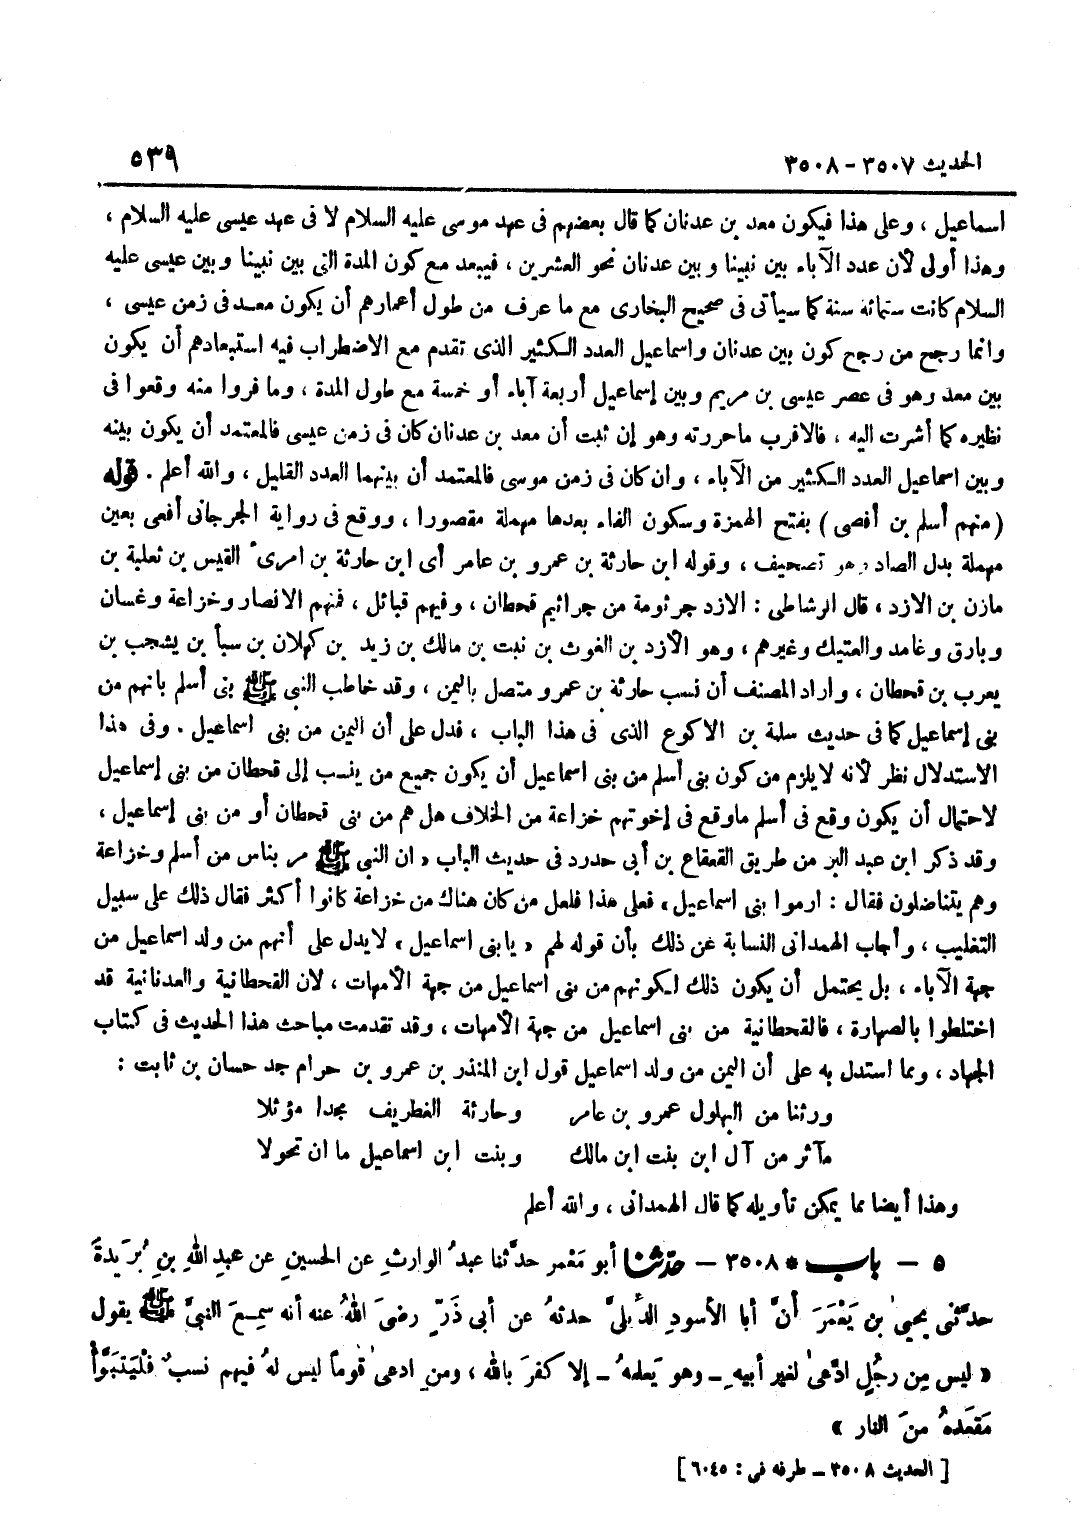 الحديث ٣٥٠٧ - ٣٥٠٨
٥٣٩
اسماعيل ، وعلى هذا فيكون معد بن عدنان كما قال بعضهم فى عهد موسى عليه السلام لا فى عهد عيسى عليه السلام ،
وهذا أولى لأن عدد الآباء بين نبينا وبين عدنان نحو العشرين ، فيبعد مع كون المدة التى بين نبينا وبين عيسى عليه
السلام كانت ستمائة سنة كما سيأتى فى صحيح البخارى مع ما عرف من طول أعمارهم أن يكون معد فى زمن عيسى ،
وانما رجح من رجح كون بين عدنان واسماعيل العدد الكثير الذى تقدم مع الاضطراب فيه استبعادهم أن يكون
بين معد وهو فى عصر عيسى بن مريم وبين إسماعيل أربعة آباء أو خمسة مع طول المدة ، وما فروا منه وقعوا فى
نظيره كما أشرت اليه ، فالاقرب ما حررته وهو إن ثبت أن معد بن عدنان كان فى زمن عيسى فالمعتمد أن يكون بينه
وبين اسماعيل العدد الكثير من الآباء ، وان كان فى زمن موسى فالمعتمد أن بينهما العدد القليل ، والله أعلم . قوله
( منهم أسلم بن أفصى ) بفتح الهمزة وسكون الفاء بعدها مهملة مقصورا ، ووقع فى رواية الجرجانى أفعى بعين
مهملة بدل الصاد وهو تصحيف ، وقوله ابن حارثة بن عمرو بن عامر أى ابن حارثة بن امرئ القيس بن ثعلبة بن
مازن بن الازد ، قال الرشاطى : الازد جرثومة من جراثيم قحطان ، وفيهم قبائل ، فمنهم الانصار وخزاعة وغسان
وبارق وغامد والعتيك وغيرهم ، وهو الأزد بن الغوث بن نبت بن مالك بن زيد بن كهلان بن سبأ بن يشجب بن
يعرب بن قحطان ، واراد المصنف أن نسب حارثة بن عمرو متصل باليمن ، وقد خاطب النبى ﷺ بنى أسلم بانهم من
بنى إسماعيل كما فى حديث سلمة بن الاكوع الذى فى هذا الباب ، فدل على أن اليمن من بنى اسماعيل . وفى هذا
الاستدلال نظر لأنه لا يلزم من كون بنى أسلم من بنى اسماعيل أن يكون جميع من ينسب إلى قحطان من بنى إسماعيل
لاحتمال أن يكون وقع فى أسلم ماوقع فى إخوتهم خزاعة من الخلاف هل هم من بنى قحطان أو من بنى إسماعيل ،
وقد ذكر ابن عبد البر من طريق القعقاع بن أبى حدرد فى حديث الباب « ان النبى ﷺ مر بناس من أسلم وخزاعة
وهم يتناضلون فقال : ارموا بنى اسماعيل ، فعلى هذا فلعل من كان هناك من خزاعة كانوا أكثر فقال ذلك على سبيل
التغليب ، وأجاب الهمدانى النسابة عن ذلك بأن قوله لهم « يا بنى اسماعيل » لا يدل على أنهم من ولد اسماعيل من
جهة الآباء ، بل يحتمل أن يكون ذلك لكونهم من بنى اسماعيل من جهة الأمهات ، لان القحطانية والعدنانية قد
اختلطوا بالصهارة ، فالقحطانية من بنى اسماعيل من جهة الأمهات ، وقد تقدمت مباحث هذا الحديث فى كتاب
الجهاد ، ومما استدل به على أن اليمن من ولد اسماعيل قول ابن المنذر بن عمرو بن حرام جد حسان بن ثابت :
ورثنا من البهلول عمرو بن عامر وحارثة الغطريف مجدا مؤثلا
مآثر من آل ابن بنت ابن مالك وبنت ابن اسماعيل ما ان تحولا
وهذا أيضا مما يمكن تأويله كما قال الهمدانى ، والله أعلم
٥ - باب * ٣٥٠٨ - حدثنا أبو مَعْمر حدَّثنا عبدُ الوارثِ عن الحسين عن عبد اللهِ بنِ بُرَيدةَ
حدَّثنى يحيىٰ بن يَعْمَرَ أنَّ أبا الأسودِ الدِّيلىَّ حدثهُ عن أبى ذَرّ رضىَ اللهُ عنه أنه سمِعَ النبىَّ ﷺ يقول
« ليس مِن رجُلٍ ادَّعىٰ لغير أبيهِ - وهو يَعلمهُ - إلا كفرَ بالله ، ومنِ ادعىٰ قوماً ليس لهُ فيهم نسبٌ فلْيَتبَوَّأْ
مَقعَدهُ منَ النار »
[ الحديث ٣٥٠٨ - طرفه في : ٦٠٤٥ ]